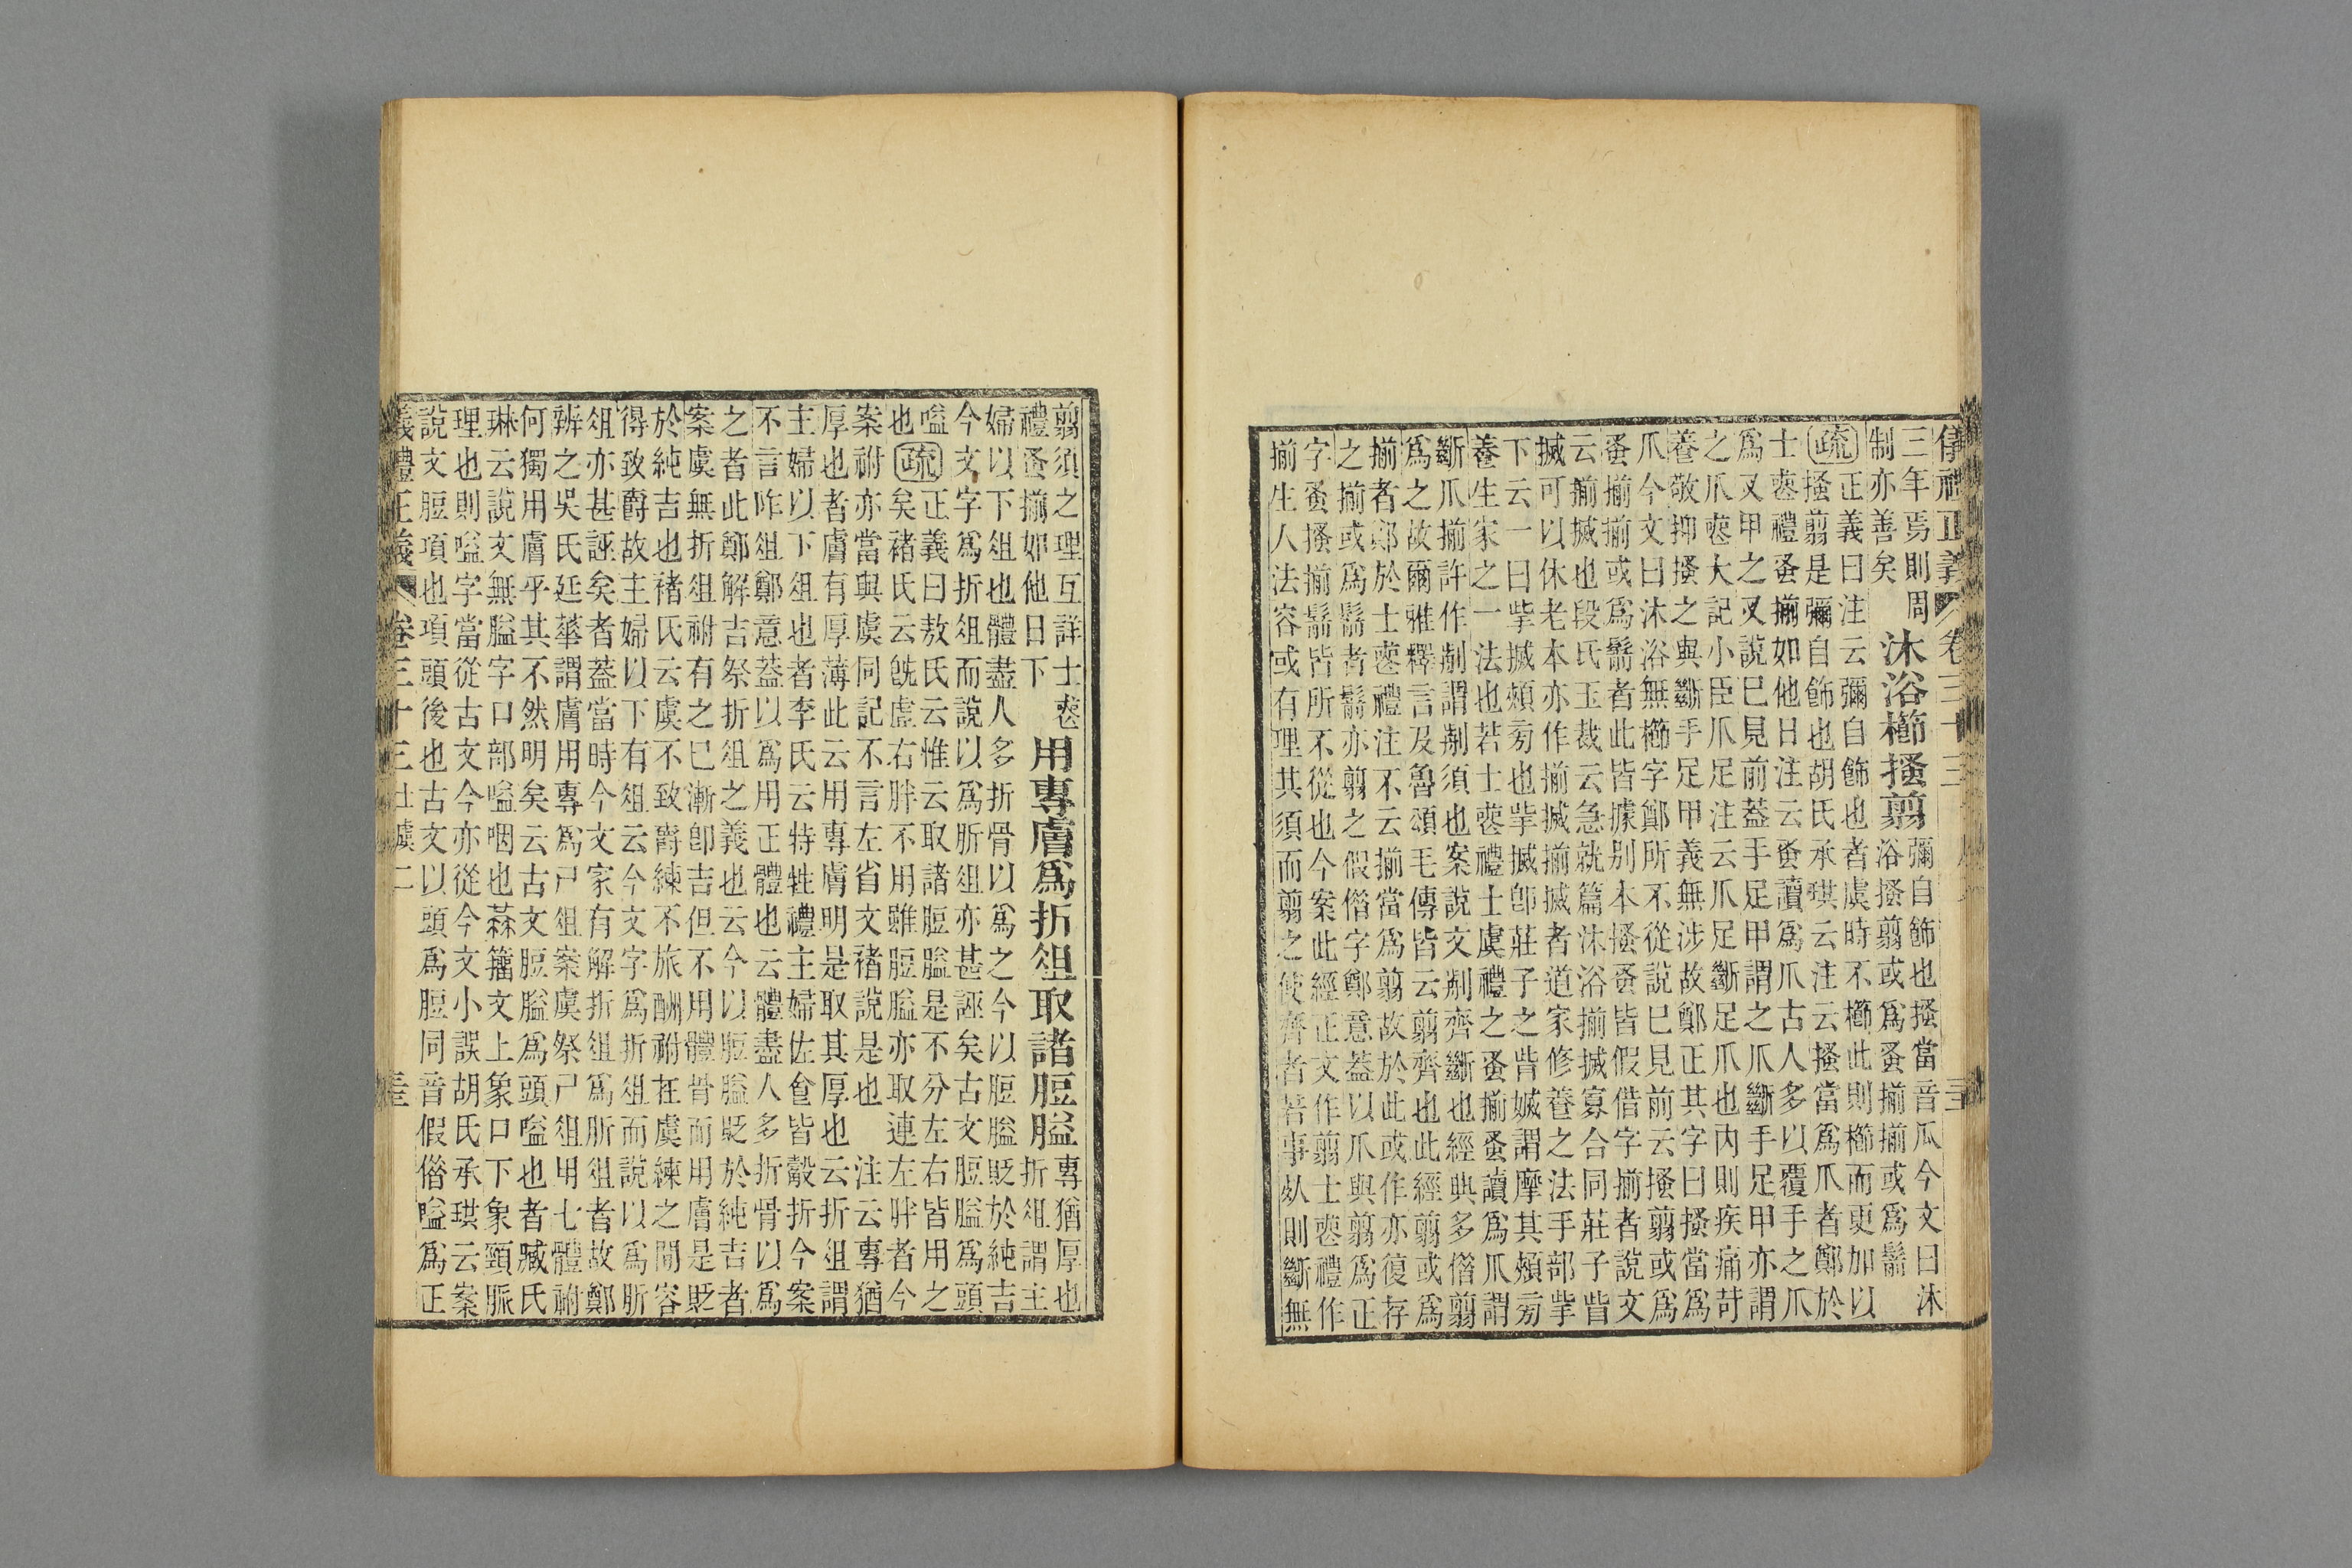 儀禮正義 卷三十三
三年焉則周
制亦善矣
沐浴櫛搔翦
彌自飾也搔當音爪今文曰沐
浴搔翦或爲蚤揃揃或爲鬋
疏
正義曰注云彌自飾也者虞時不櫛此則櫛而更加以
搔翦是彌自飾也胡氏承珙云注云搔當爲爪者鄭於
士喪禮蚤揃如他日注云蚤讀爲爪古人多以覆手之爪
爲叉甲之叉說已見前蓋手足甲謂之爪斷手足甲亦謂
之爪喪大記小臣爪足注云爪足斷足爪也內則疾痛苛
養敬抑搔之與斷手足甲義無涉故鄭正其字曰搔當爲
爪今文曰沐浴無櫛字鄭所不從說已見前云搔翦或爲
蚤揃揃或爲鬋者此皆據別本搔蚤皆假借字揃者說文
云揃搣也段氏玉裁云急就篇沐浴揃搣寡合同莊子眥
搣可以休老本亦作揃搣揃搣者道家修養之法手部㧗
下云一曰㧗搣頰旁也㧗搣卽莊子之眥㛽謂摩其頰旁
養生家之一法也若士喪禮士虞禮之蚤揃蚤讀爲爪謂
斷爪揃許作㓡謂㓡須也案說文㓡齊斷也經典多借翦
爲之故爾雅釋言及魯頌毛傳皆云翦齊也此經翦或爲
揃者鄭於士喪禮注不云揃當爲翦故於此或作亦復存
之揃或爲鬋者鬋亦翦之假借字鄭意蓋以爪與翦爲正
字蚤搔揃鬋皆所不從也今案此經正文作翦士喪禮作
揃生人法容或有理其須而翦之使齊者若事死則斷無
翦須之理互詳士喪
禮蚤揃如他日下
用專膚爲折俎取諸脰膉
專猶厚也
折俎謂主
婦以下俎也體盡人多折骨以爲之今以脰膉貶於純吉
今文字爲折俎而說以爲肵俎亦甚誣矣古文脰膉爲頭
嗌
也
疏
正義曰敖氏云惟云取諸脰膉是不分左右皆用之
矣褚氏云旣虛右胖不用雖脰膉亦取連左胖者今
案祔亦當與虞同記不言左省文褚說是也 注云專猶
厚也者膚有厚薄此云用專膚明是取其厚也云折俎謂
主婦以下俎也者李氏云特牲禮主婦佐食皆觳折今案
不言胙俎鄭意蓋以爲用正體也云體盡人多折骨以爲
之者此鄭解吉祭折俎之義也云今以脰膉貶於純吉者
案虞無折俎祔有之已漸卽吉但不用體骨而用膚是貶
於純吉也褚氏云虞不致爵練不旅酬祔在虞練之間容
得致爵故主婦以下有俎云今文字爲折俎而說以爲肵
俎亦甚誣矣者蓋當時今文家有解折俎爲肵俎者故鄭
辨之吳氏廷華謂膚用專爲尸俎案虞祭尸俎用七體祔
何獨用膚乎其不然明矣云古文脰膉爲頭嗌也者臧氏
琳云說文無膉字口部嗌咽也籀文上象口下象頸脈
理也則嗌字當從古文今亦從今文小誤胡氏承珙云案
說文脰項也項頭後也古文以頭爲脰同音假借嗌爲正
義禮正義 卷三十三士虞二